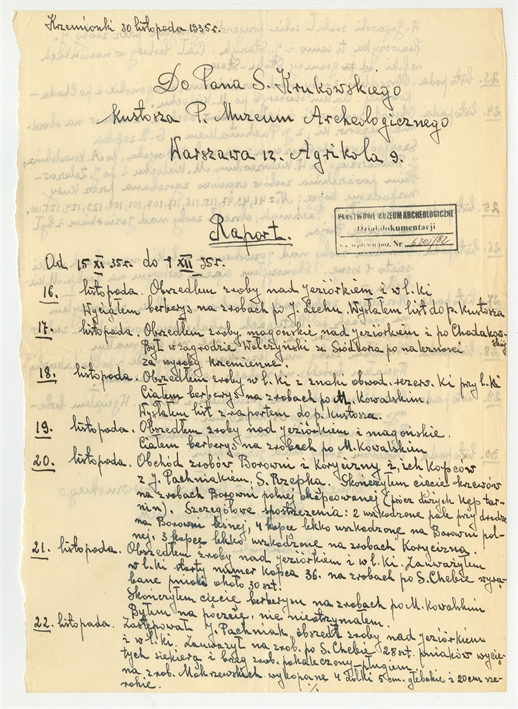 Krzemionki 30 listopada 1935 r.
Do Pana S. Krukowskiego
kustosza P. Muzeum Archeologicznego
Warszawa 12. Agrikola 9.
PAŃSTWOWE MUZEUM ARCHEOLOGICZNE
Dział dokumentacji
Nr
Raport.
Od 15 XI 35 r. do 1 XII 35 r.
16. listopada. Obszedłem zroby nad jeziórkiem i w l. Ki
Wyciąłem berberys na zrobach po J. Lechu. Wysłałem list do p. Kustosza
17. listopada. Obszedłem zroby magońskie nad jeziórkiem i po Chodakow
skiej
Był w zagrodzie Wałczyński ze Siódkora po należności
za wyroby krzemienne.
18. listopada. Obszedłem zroby w l. Ki z znaki obwod. rezerw. Ki przy l. Ki
Ciąłem berberys na zrobach po M. Kowalskim.
Wysłałem list z raportem do p. Kustosza.
19. listopada. Obszedłem zroby nad jeziórkiem i magońskie.
Ciąłem berberys na zrobach po M. Kowalskim
20. listopada. Obchód zrobów Borowni i Korycizny i ich Kopców
z J. Pachniakiem, S. Rzepką. Skończyłem cięcie krzewów
na zrobach Borowni polnej skupcowanej (prócz dużych kęp tar-
nin). Szczegółowe spostrzeżenia: 2 uszkodzone pale przy drodze
na Borowni leśnej, 4 kopce lekko uszkodzone na Borowni pol-
nej. 3 kopce lekko uszkodzone na zrobach Korycizna.
21. listopada. Obszedłem zroby nad jeziórkiem i w l. Ki. Zauważyłem
w l. Ki starty numer kopca 36. na zrobach po S. Chebie wyrą-
bane pniaki około 30 szt.
Skończyłem cięcie berberysu na zrobach po M. Kowalskim
Byłem na poczcie, nie nie otrzymałem.
22. listopada. Zastępował J. Pachniak, obszedł zroby nad jeziórkiem
i w l. Ki. Zauważył na zrob. po S. Chebie 28 szt. pniaków wycię-
tych siekierą i brzeg zrob. pokaleczony pługiem
na zrob. Mokrzewskich wykopane 4 dołki 5 cm. głębokie i 20 cm sze-
rokie.